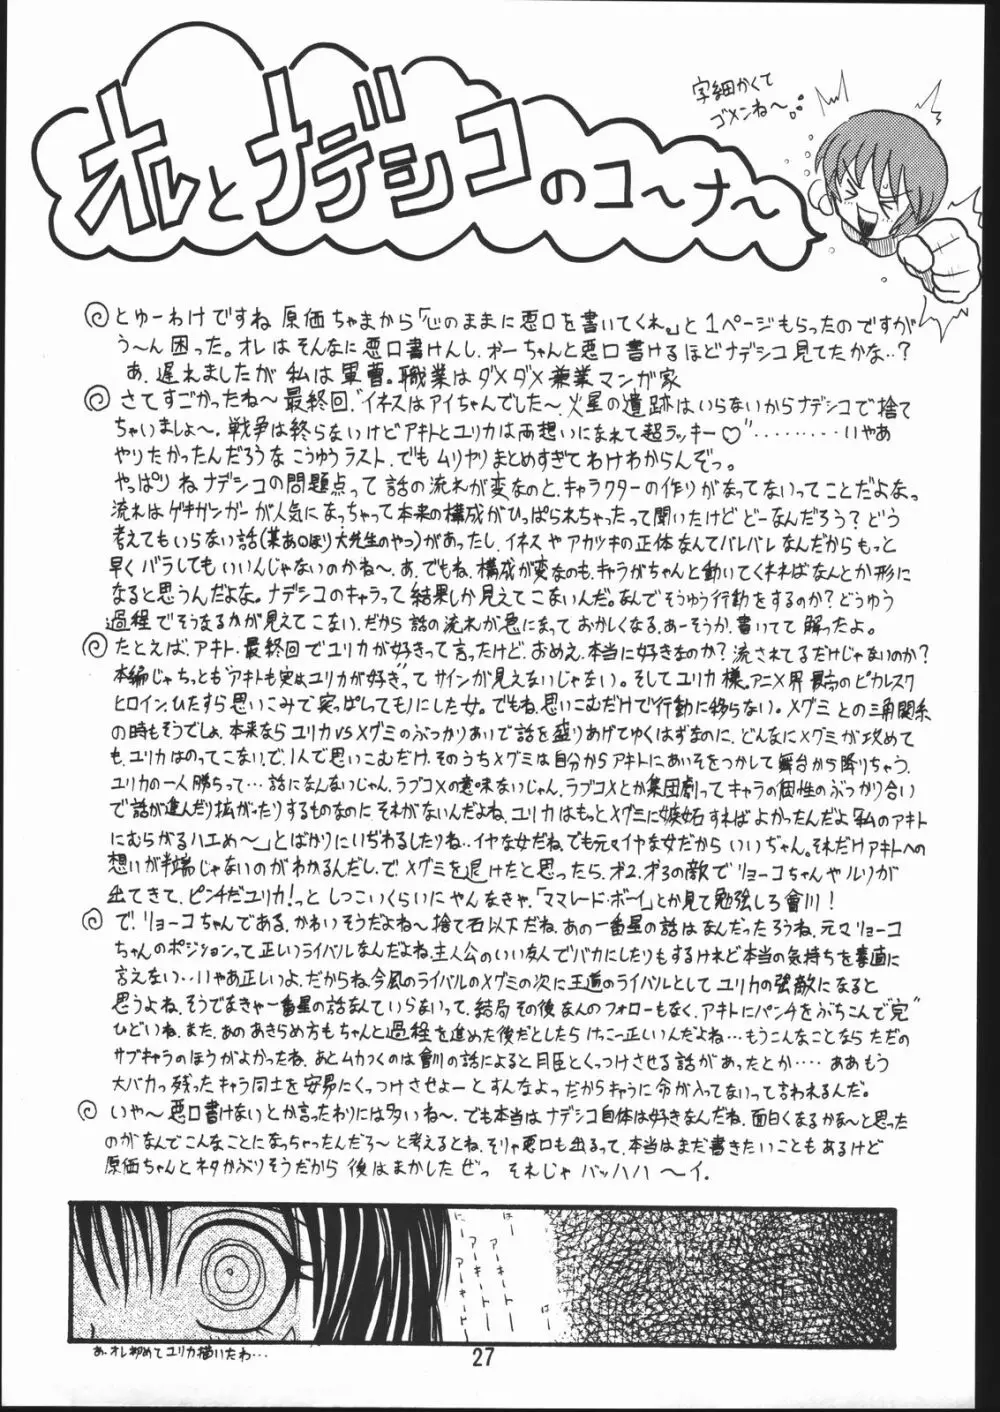 オレとナデシコのコ〜ナ〜
字細かくて
ゴメンね〜
とゆーわけですね 原価ちゃまから「心のままに悪口を書いてくれ。」と1ページもらったのですが
う〜ん困った。オレはそんなに悪口書けんし、かーちゃんと悪口書けるほどナデシコ見てたかな‥?
あ、遅れましたが私は軍曹。職業はダメダメ兼業マンガ家
さてすごかったね〜最終回、"イネスはアイちゃんでした〜火星の遺跡はいらないからナデシコで捨て
ちゃいましょ〜、戦争は終らないけどアキトとユリカは両想いになれて超ラッキー♡"………いやあ
やりたかったんだろうな こうゆうラスト、でもムリヤリまとめすぎてわけわからんぞっ。
やっぱりねナデシコの問題点って話の流れが変なのと、キャラクターの作りがなってないってことだよなっ
流れはゲキガンガーが人気になっちゃって本来の構成がひっぱられちゃったって聞いたけどどーなんだろう?どう
考えてもいらない話(某あ○ほり大先生のやつ)があったし、イネスやアカツキの正体なんてバレバレなんだからもっと
早くバラしてもいいんじゃないのかね〜。あ、でもね、構成が変なのも、キャラがちゃんと動いてくれればなんとか形に
なると思うんだよな。ナデシコのキャラって結果しか見えてこないんだ。なんでそうゆう行動をするのか?どうゆう
過程でそうなるかが見えてこない、だから話の流れが急になっておかしくなる、あーそうか、書いてて解ったよ。
たとえば、アキト、最終回でユリカが好きって言ったけど、おめえ、本当に好きなのか?流されてるだけじゃないのか?
本編じゃちっとも"アキトも実はユリカが好き"ってサインが見えないじゃない。そしてユリカ様。アニメ界最高のピカレスク
ヒロイン、ひたすら思いこみで突っぱしってモノにした女。でもね、思いこむだけで行動に移らない。メグミとの三角関係
の時もそうでしょ、本来ならユリカVSメグミのぶっかりあいで話を盛りあげてゆくはずなのに、どんなにメグミが攻めて
も、ユリカはのってこないで、1人で思いこむだけ、そのうちメグミは自分からアキトにあいそをつかして舞台から降りちゃう、
ユリカの一人勝ちって…話になんないじゃん、ラブコメの意味ないじゃん、ラブコメとか集団劇ってキャラの個性のぶっかり合い
で話が進んだり拡がったりするものなのに それがないんだよね、ユリカはもっとメグミに嫉妬すればよかったんだよ「私のアキト
にむらがるハエめ〜」とばかりにいぢわるしたりね‥イヤな女だね、でも元々イヤな女だからいいぢゃん。それだけアキトへの
想いが半端じゃないのがわかるんだし、で、メグミを退けたと思ったら、オ2、オ3の敵でリョーコちゃんやルリが
出てきて、ピンチだユリカ!っと しつこいくらいにやんなきゃ、「ママレード・ボーイ」とか見て勉強しろ會川!
で、リョーコちゃんである、かわいそうだよね〜捨て石以下だね、あの一番星の話はなんだったろうね、元々リョーコ
ちゃんのポジションって正しいライバルなんだよね、主人公のいい友人でバカにしたりもするけれど本当の気持ちを素直に
言えない…いやあ正しいよ、だからね、今風のライバルのメグミの次に王道のライバルとしてユリカの強敵になると
思うよね、そうでなきゃ一番星の話なんていらないって、結局その後なんのフォローもなく、アキトにパンチをぶちこんで"完"
ひどいね、また、あのあきらめ方もちゃんと過程を進めた後だとしたらけっこー正しいんだよね…もうこんなことならただの
サブキャラのほうがよかったね、あとムカつくのは會川の話によると月臣とくっつけさせる話があったとか…‥ああもう
大バカっ残ったキャラ同士を安易にくっつけさせよーとすんなよっだからキャラに命が入ってないって言われるんだ。
いや〜悪口書けないとか言ったわりには多いね〜、でも本当はナデシコ自体は好きなんだね、面白くなるかな〜と思った
のがなんでこんなことになっちゃったんだろ〜と考えるとね、そりゃ悪口も出るって、本当はまだ書きたいこともあるけど
原価ちゃんとネタかぶりそうだから後はまかしたぜっ それじゃバッハハ〜イ。
あ、オレ初めてユリカ描いたわ…
27